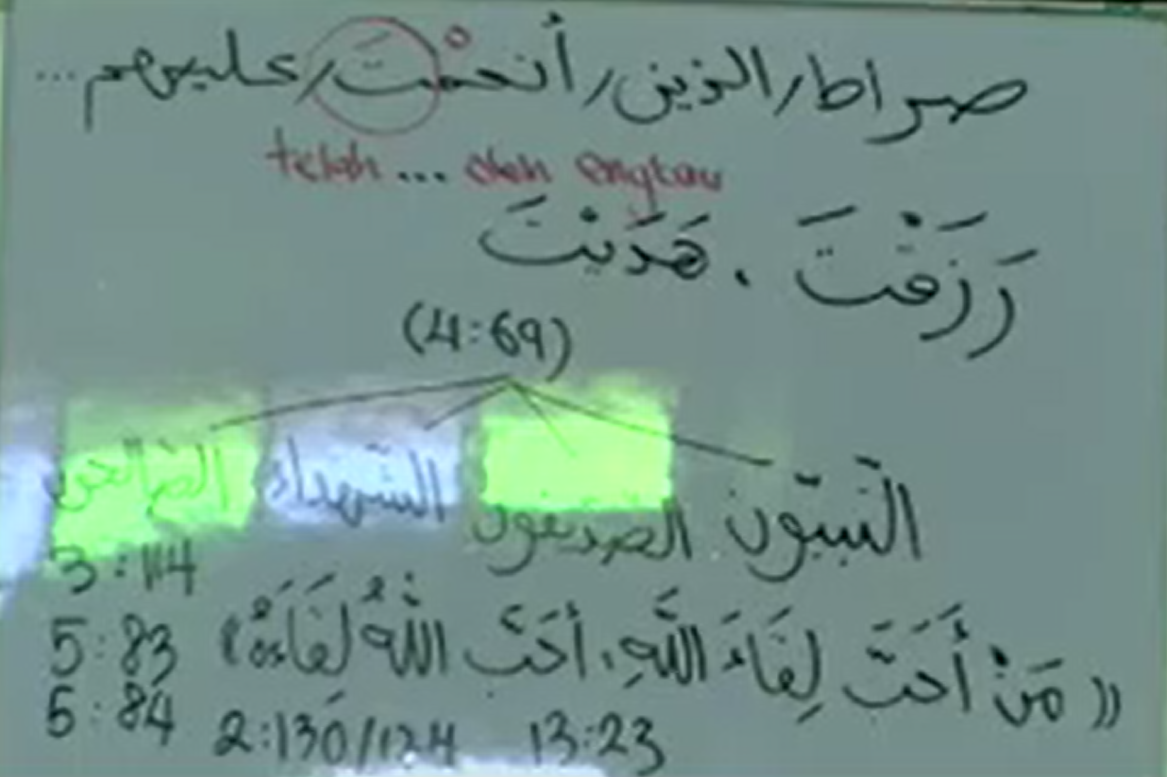 صراط/الذين/أنعمْتَ/عليهم...
telah ... oleh engkau
رَزَقْتَ ، هَدَيْتَ
(4:69)
النّبيّون الصديقون الشهداء الصالحون
3:114
5:83 «مَنْ أَحَبَّ لِقَاءَ اللَّهِ، أَحَبَّ اللَّهُ لِقَاءَهُ»
5:84 2:130/124 13:23